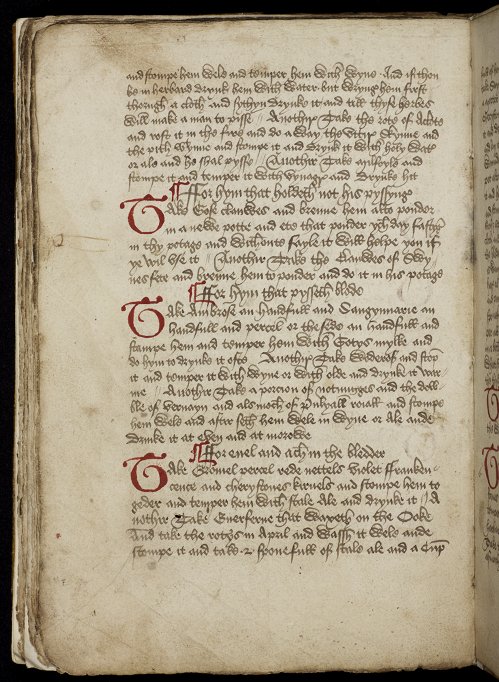 and stompe hem welo and temper hem with wyno And if thou
be in herbard drynk hem with water but wryng hem first
thorugh a cloth and sythyn drynke it and till thyse herbes
will make a man to pisse // Anothir Take the rote of
and rost it in the fire and do a way the Skynne and
the pith wynne and stompe it and drynk it with holy watr
or ale and he shal pysse // Anothir Take and
stompe it and temper it with vynagr and drynke hit
ffor hym that holdeth not his pyssyng
Take Gose clawwes and brenne hem atto pouder
in a newe potte and ete that ponder ych day fastyn
in thy potage and without fayle it will helpe you if
ye wil vse it // Anothir Take the Clawwes of Swy
nes fete and brenne hem to ponder and do it in his potage
ffor hym that pysseth blode
Take Ambrose an handfull and Sangynnarie an
handfull and percel or the sede an handfull and
stampe hem and temper hem with Gotys mylke and
do hym to drynke it ofte Anothir Take and stop
it and temper it with wyne or with olde and drynke it war
me // Anothyr Take a porcion of notmuges and the dob
ble of vervayn and als moch of roiall and stompe
hem welo and after seth hem wele in wyne or Ale ande
Drinke it at eben and at morowe
ffor euel and ach in the bledder
Take Gromel percel rede nettels violet ffranken
cence and cherystones kirnels and stompe hem to
geder and temper hem with stale Ale and drynke it // A
nothir Take Euerferne that waxeth on the Ooke
And take the rotys in April and wassh it welo ande
stompe it and take 2 spone full of stale ale and a Cup